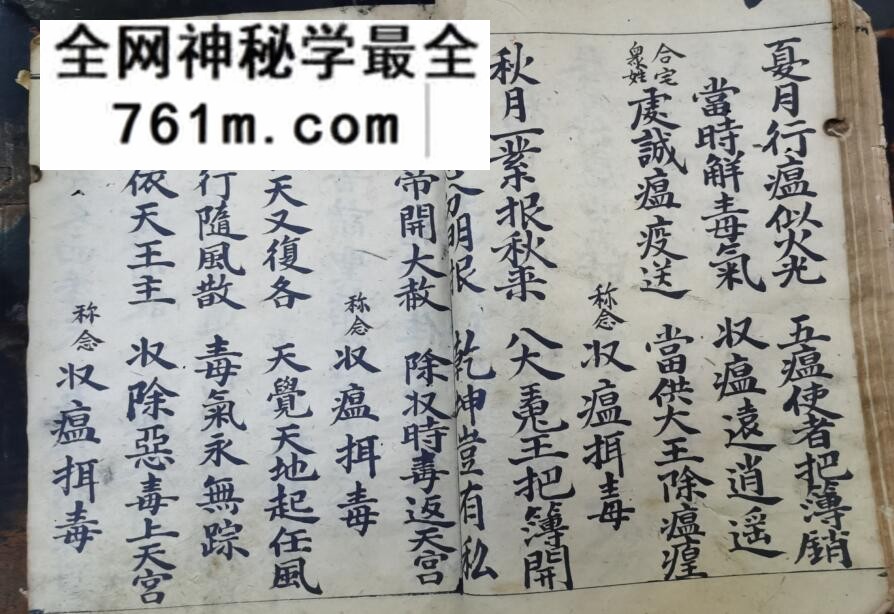 全网神秘学最全
761m.com
夏月行瘟似火光 五瘟使者把簿銷
當時解毒氣 収瘟遠逍遥
合宅衆姓 虔誠瘟疫送 當供大王除瘟瘽
称念 収瘟摂毒
秋月一業报秋来 八大鬼王把簿開
分明眼 乾坤豈有私
帝開大赦 除収時毒返天宫
称念 収瘟摂毒
天又復各 天覺天地起任風
行隨風散 毒氣永無踪
依天王主 収除惡毒上天宫
称念 収瘟摂毒